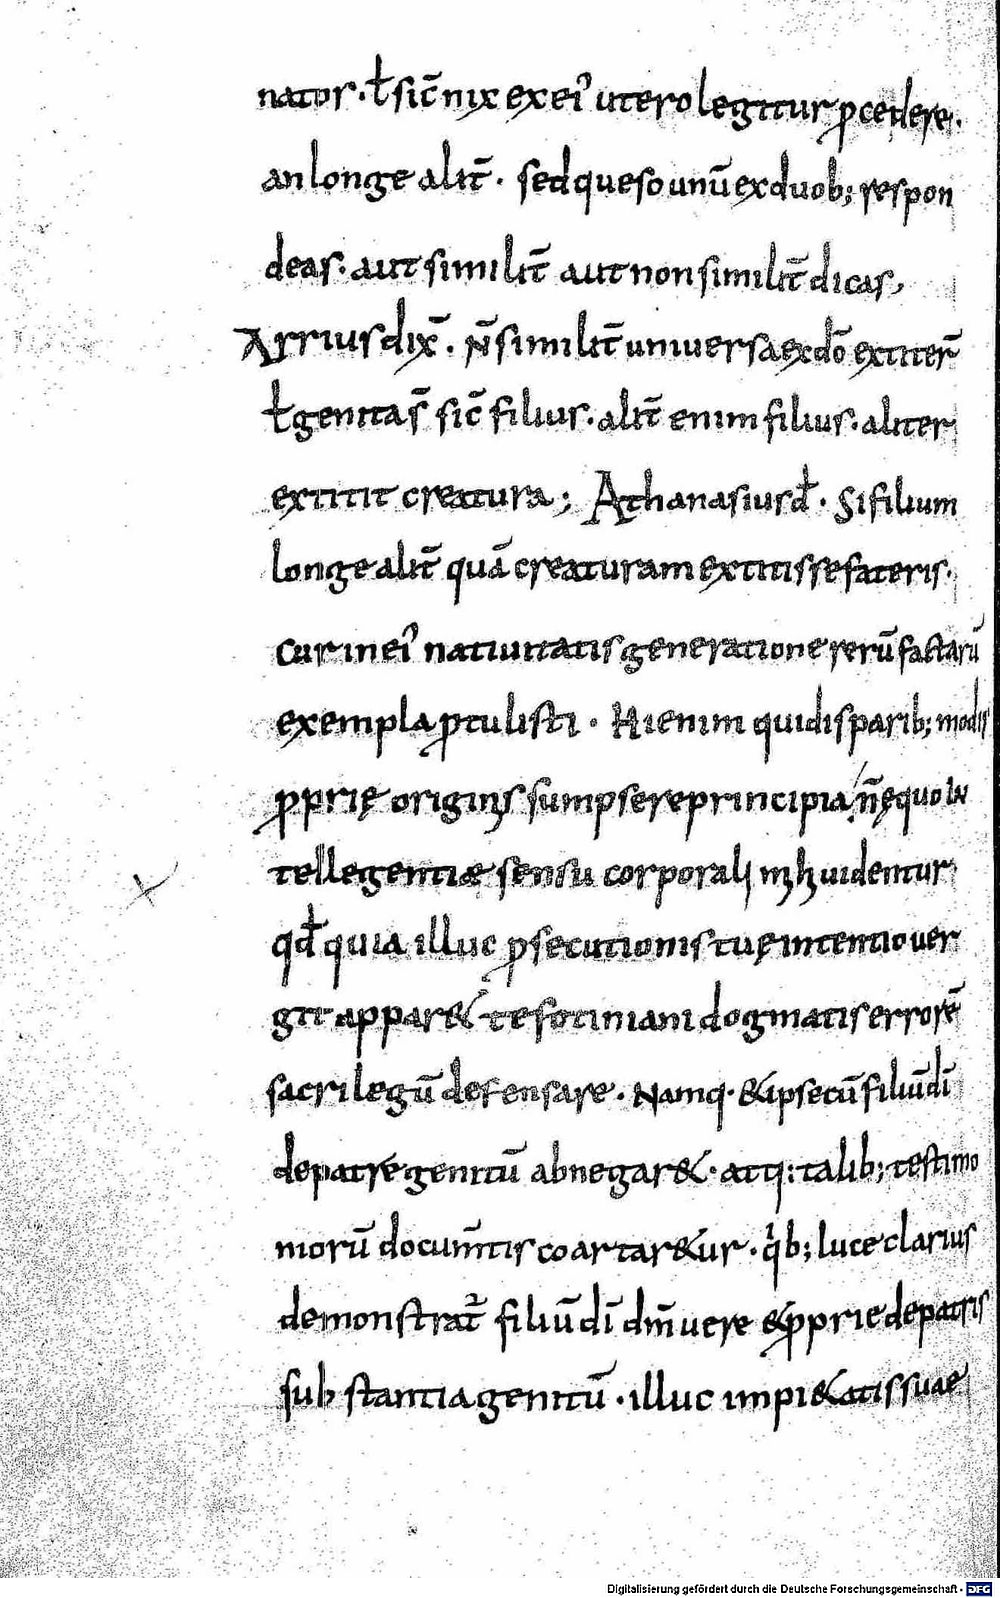 nator · ł sic̄ nix ex ei᾿ utero legitur ꝓcedere.
an longe alit̄ · sed queso unū ex duob; respon
deas · aut similit̄ aut non similit̄ dicas,
Arrius dix̄ . n̄ similit̄ universa ex dō extiter̄
ł genita s̄ sic̄ filius · alit̄ enim filius · aliter
extitit creatura ; Athanasius đ · Si filium
longe alit̄ quā creaturam extitisse fateris ·
cur in ei᾿ nativitatis generatione rerū factarū
exempla ꝓtulisti · Hi enim qui disparib; modis
ꝓprię originis sumpsere principia, n̄ ęquo in
tellegentiæ sensu corporali videntur
qđ quia illuc ꝓsecutionis tuę intentio ver
git appar& te fotiniani dogmatis errorē
sacrilegū defensare . Namq · & ipse cū filiū dī
de patre genitū abnegar& · atq: talib; testimo
niorū documt̄is coartar&ur · qib; luce clarius
demonstrat᷑ filiū dī dm̄ vere & ꝓprie de patris
substantia genitū · illuc impi&atis suae
Digitalisierung gefördert durch die Deutsche Forschungsgemeinschaft - DFG